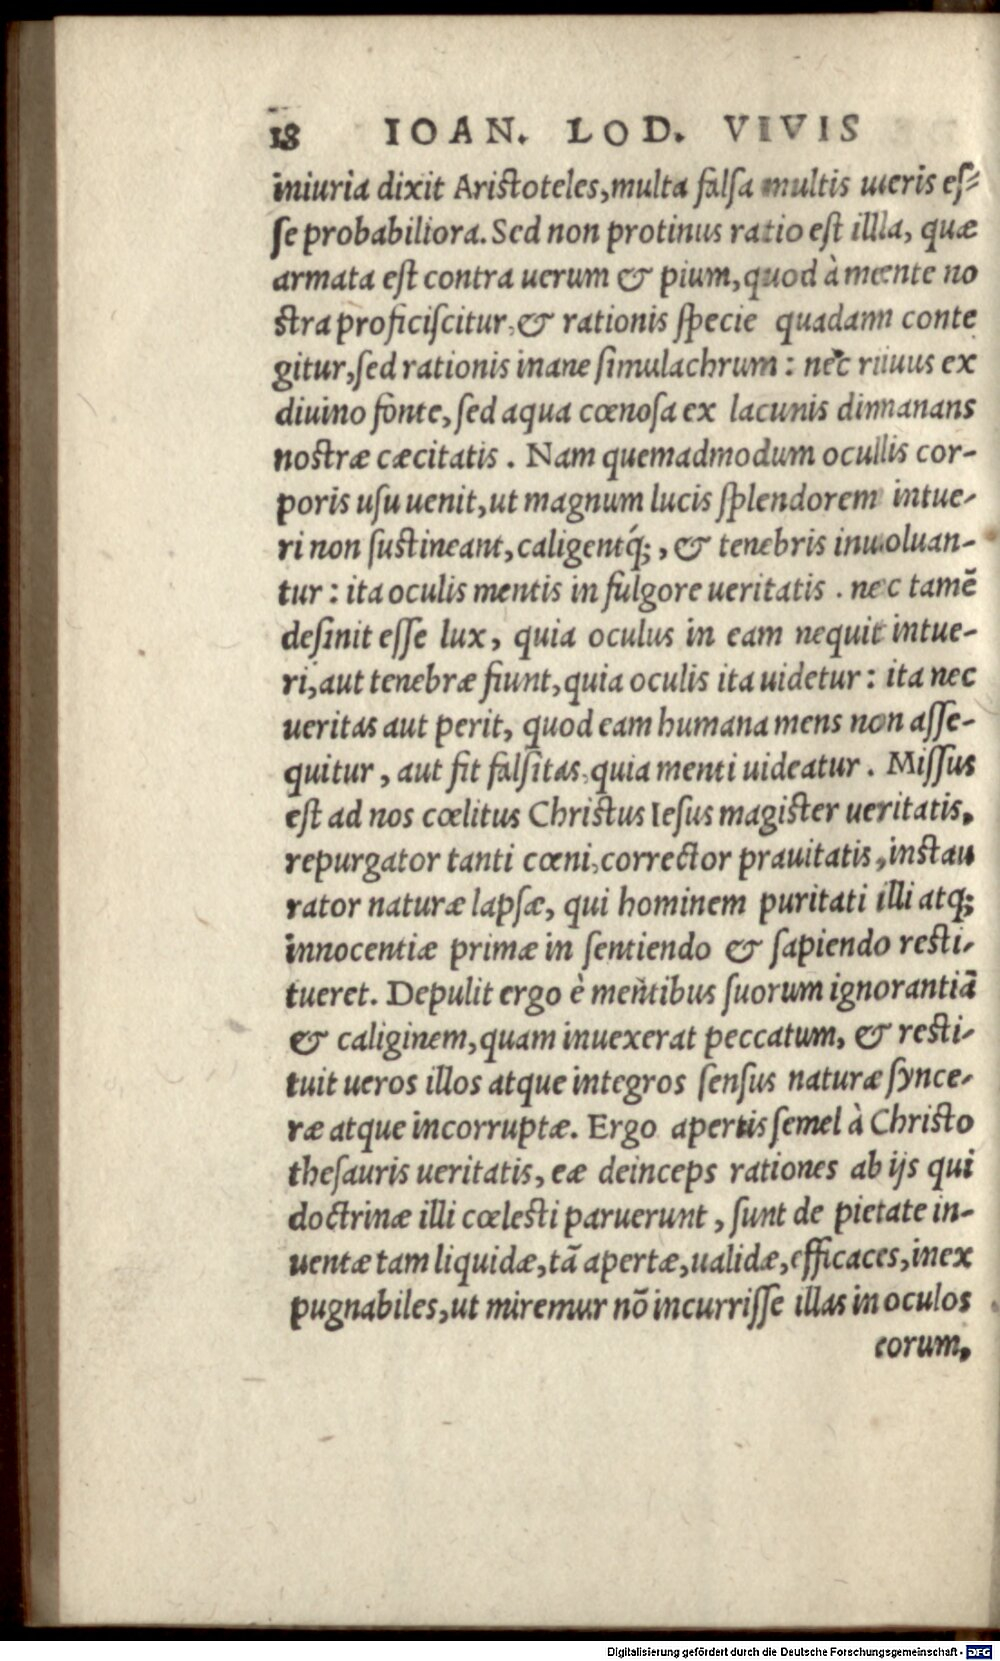 18 IOAN. LOD. VIVIS
iniuria dixit Aristoteles, multa falsa multis ueris es-
se probabiliora. Sed non protinus ratio est illa, quæ
armata est contra uerum & pium, quod à mente no
stra proficiscitur, & rationis specie quadam conte
gitur, sed rationis inane simulachrum: nec riuus ex
diuino fonte, sed aqua cœnosa ex lacunis dimanans
nostræ cæcitatis. Nam quemadmodum oculis cor-
poris usu uenit, ut magnum lucis splendorem intue-
ri non sustineant, caligentq́;, & tenebris inuoluan-
tur: ita oculis mentis in fulgore ueritatis. nec tamē
desinit esse lux, quia oculus in eam nequit intue-
ri, aut tenebræ fiunt, quia oculis ita uidetur: ita nec
ueritas aut perit, quod eam humana mens non asse-
quitur, aut fit falsitas, quia menti uideatur. Missus
est ad nos cœlitus Christus Iesus magister ueritatis,
repurgator tanti cœni, corrector prauitatis, instau
rator naturæ lapsæ, qui hominem puritati illi atq;
innocentiæ primæ in sentiendo & sapiendo resti-
tueret. Depulit ergo è mentibus suorum ignorantiā
& caliginem, quam inuexerat peccatum, & resti-
tuit ueros illos atque integros sensus naturæ synce-
ræ atque incorruptæ. Ergo apertis semel à Christo
thesauris ueritatis, eæ deinceps rationes ab ijs qui
doctrinæ illi cœlesti paruerunt, sunt de pietate in-
uentæ tam liquidæ, tā apertæ, ualidæ, efficaces, inex
pugnabiles, ut miremur nō incurrisse illas in oculos
eorum,
Digitalisierung gefördert durch die Deutsche Forschungsgemeinschaft - DFG